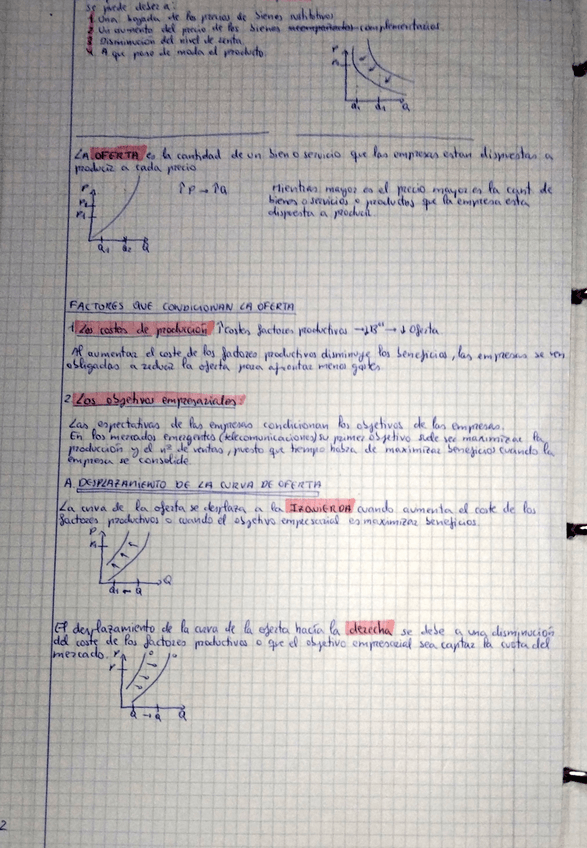 se puede deber a:
1. Una bajada de los precios de bienes sustitutivos
2. Un aumento del precio de los bienes complementarios.
3. Disminución del nivel de renta.
4. A que pase de moda el producto.
P
P1
d1 d1 Q
LA OFERTA es la cantidad de un bien o servicio que las empresas estan dispuestas a
producir a cada precio
↑P → ↑Q
Mientras mayor es el precio mayor es la cant de
bienes o servicios o productos que la empresa esta
dispuesta a producir
P
P2
P1
Q1 Q2 Q
FACTORES QUE CONDICIONAN LA OFERTA
1. Los costos de producción ↑costes factores productivos → ↓Bº → ↓ Oferta.
Al aumentar el coste de los factores productivos disminuye los beneficios, las empresas se ven
obligadas a reducir la oferta para afrontar menos gastos.
2. Los objetivos empresariales
Las espectativas de las empresas condicionan los objetivos de las empresas.
En los mercados emergentes (telecomunicaciones) su primer objetivo suele ser maximizar la
producción y el nº de ventas, puesto que tiempo habra de maximizar beneficios cuando la
empresa se consolide
A. DESPLAZAMIENTO DE LA CURVA DE OFERTA
La curva de la oferta se desplaza a la IZQUIERDA cuando aumenta el coste de los
factores productivos o cuando el objetivo empresarial es maximizar beneficios.
P
P1
Q1 ← Q Q
El desplazamiento de la curva de la oferta hacia la derecha se debe a una disminución
del coste de los factores productivos o que el objetivo empresarial sea captar la cuota del
mercado.
P
P
Q → Q Q
2